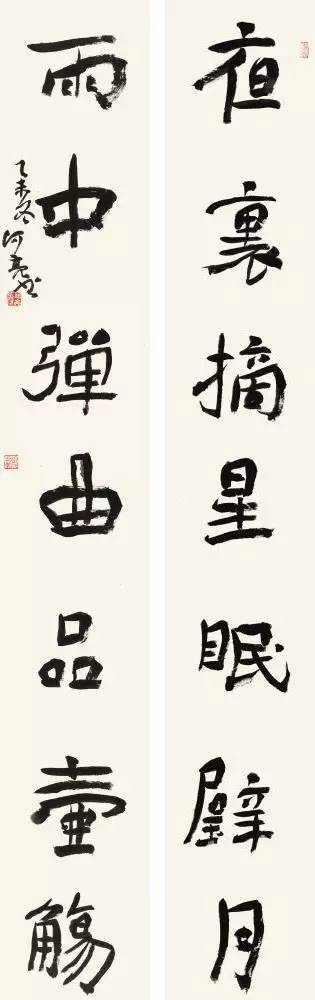 夜裏摘星眠璧月
雨中彈曲品壺觴
乙未冬河亮书